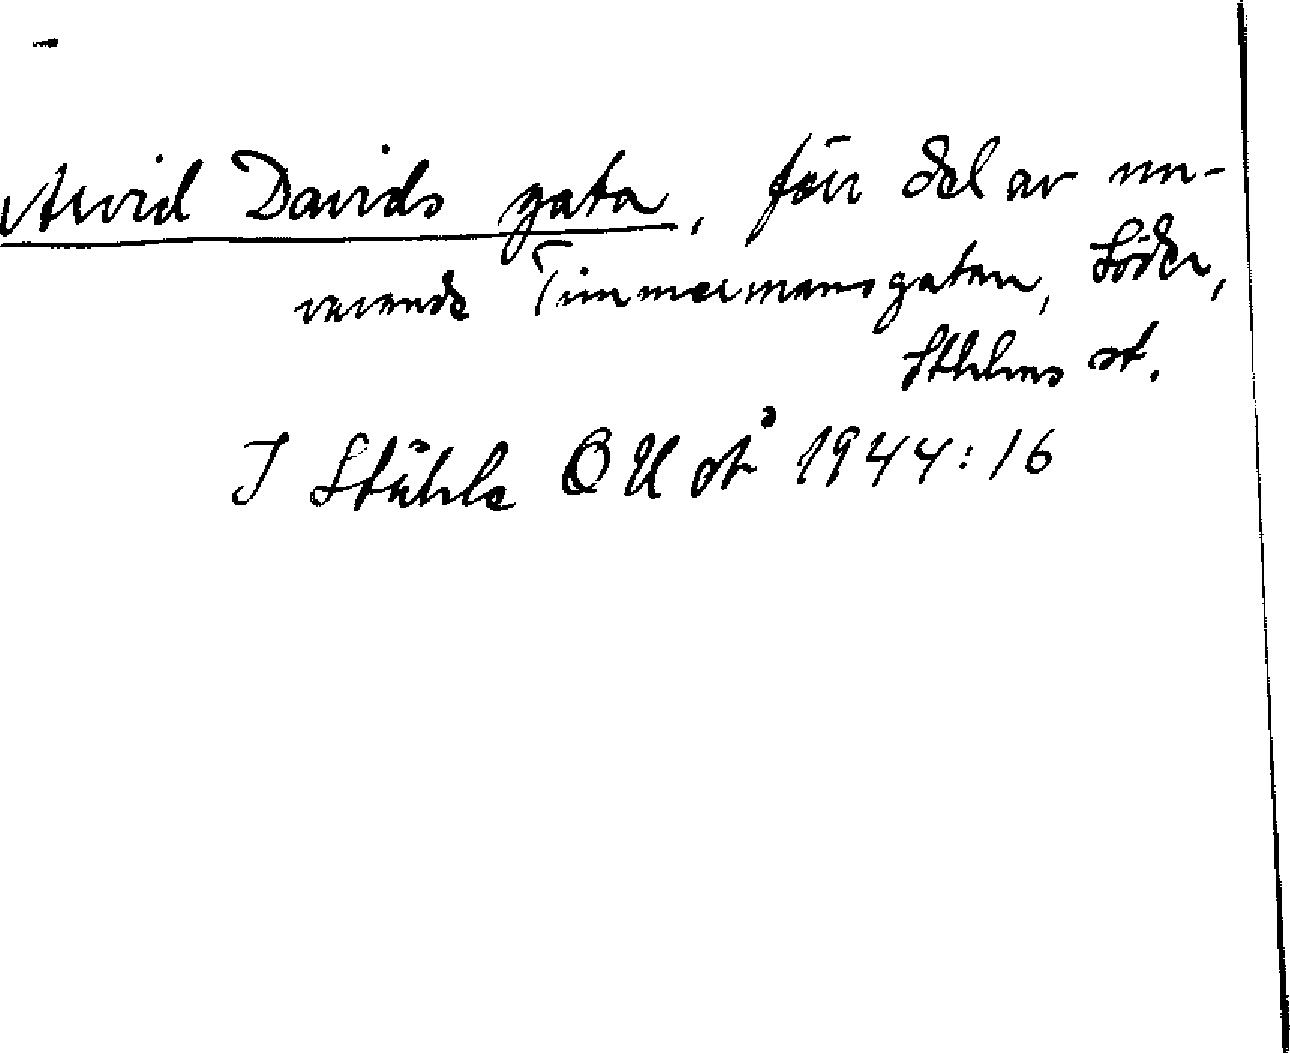 Arvid Davids gata, förr del av nu-
varande Timmermansgatan, Söder,
Sthlms st.
I Ståhle OUst 1944:16